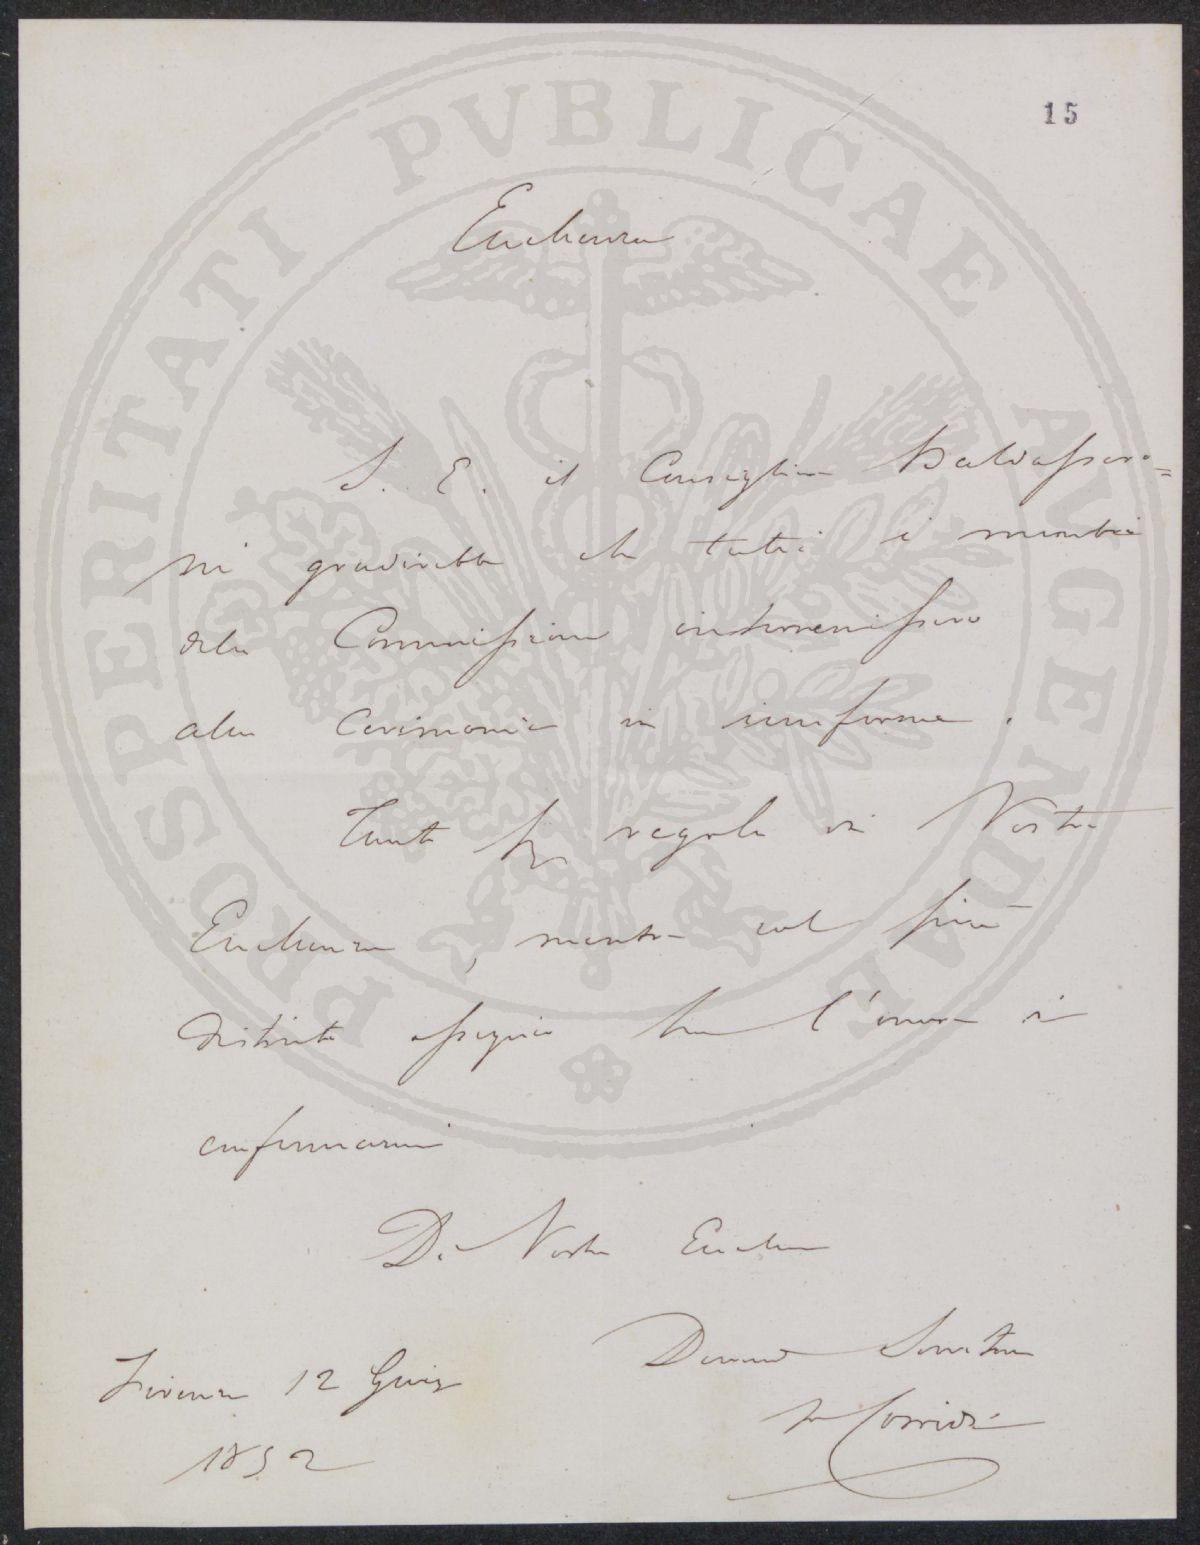 15
PROSPERITATI PVBLICAE AVGENDAE
Eccellenza
S. E. il Consigliere Baldassero=
ni gradirebbe che tutti i membri
della Commissione intervenissero
alla Cerimonia in uniforme.
Tanto per regola di Vostra
Eccellenza, mentre col più
distinto ossequio ho l'onore di
confermarmi
Di Vostra Eccellenza
Devmo Servitore
Corridi
Firenze 12 Giug
1852